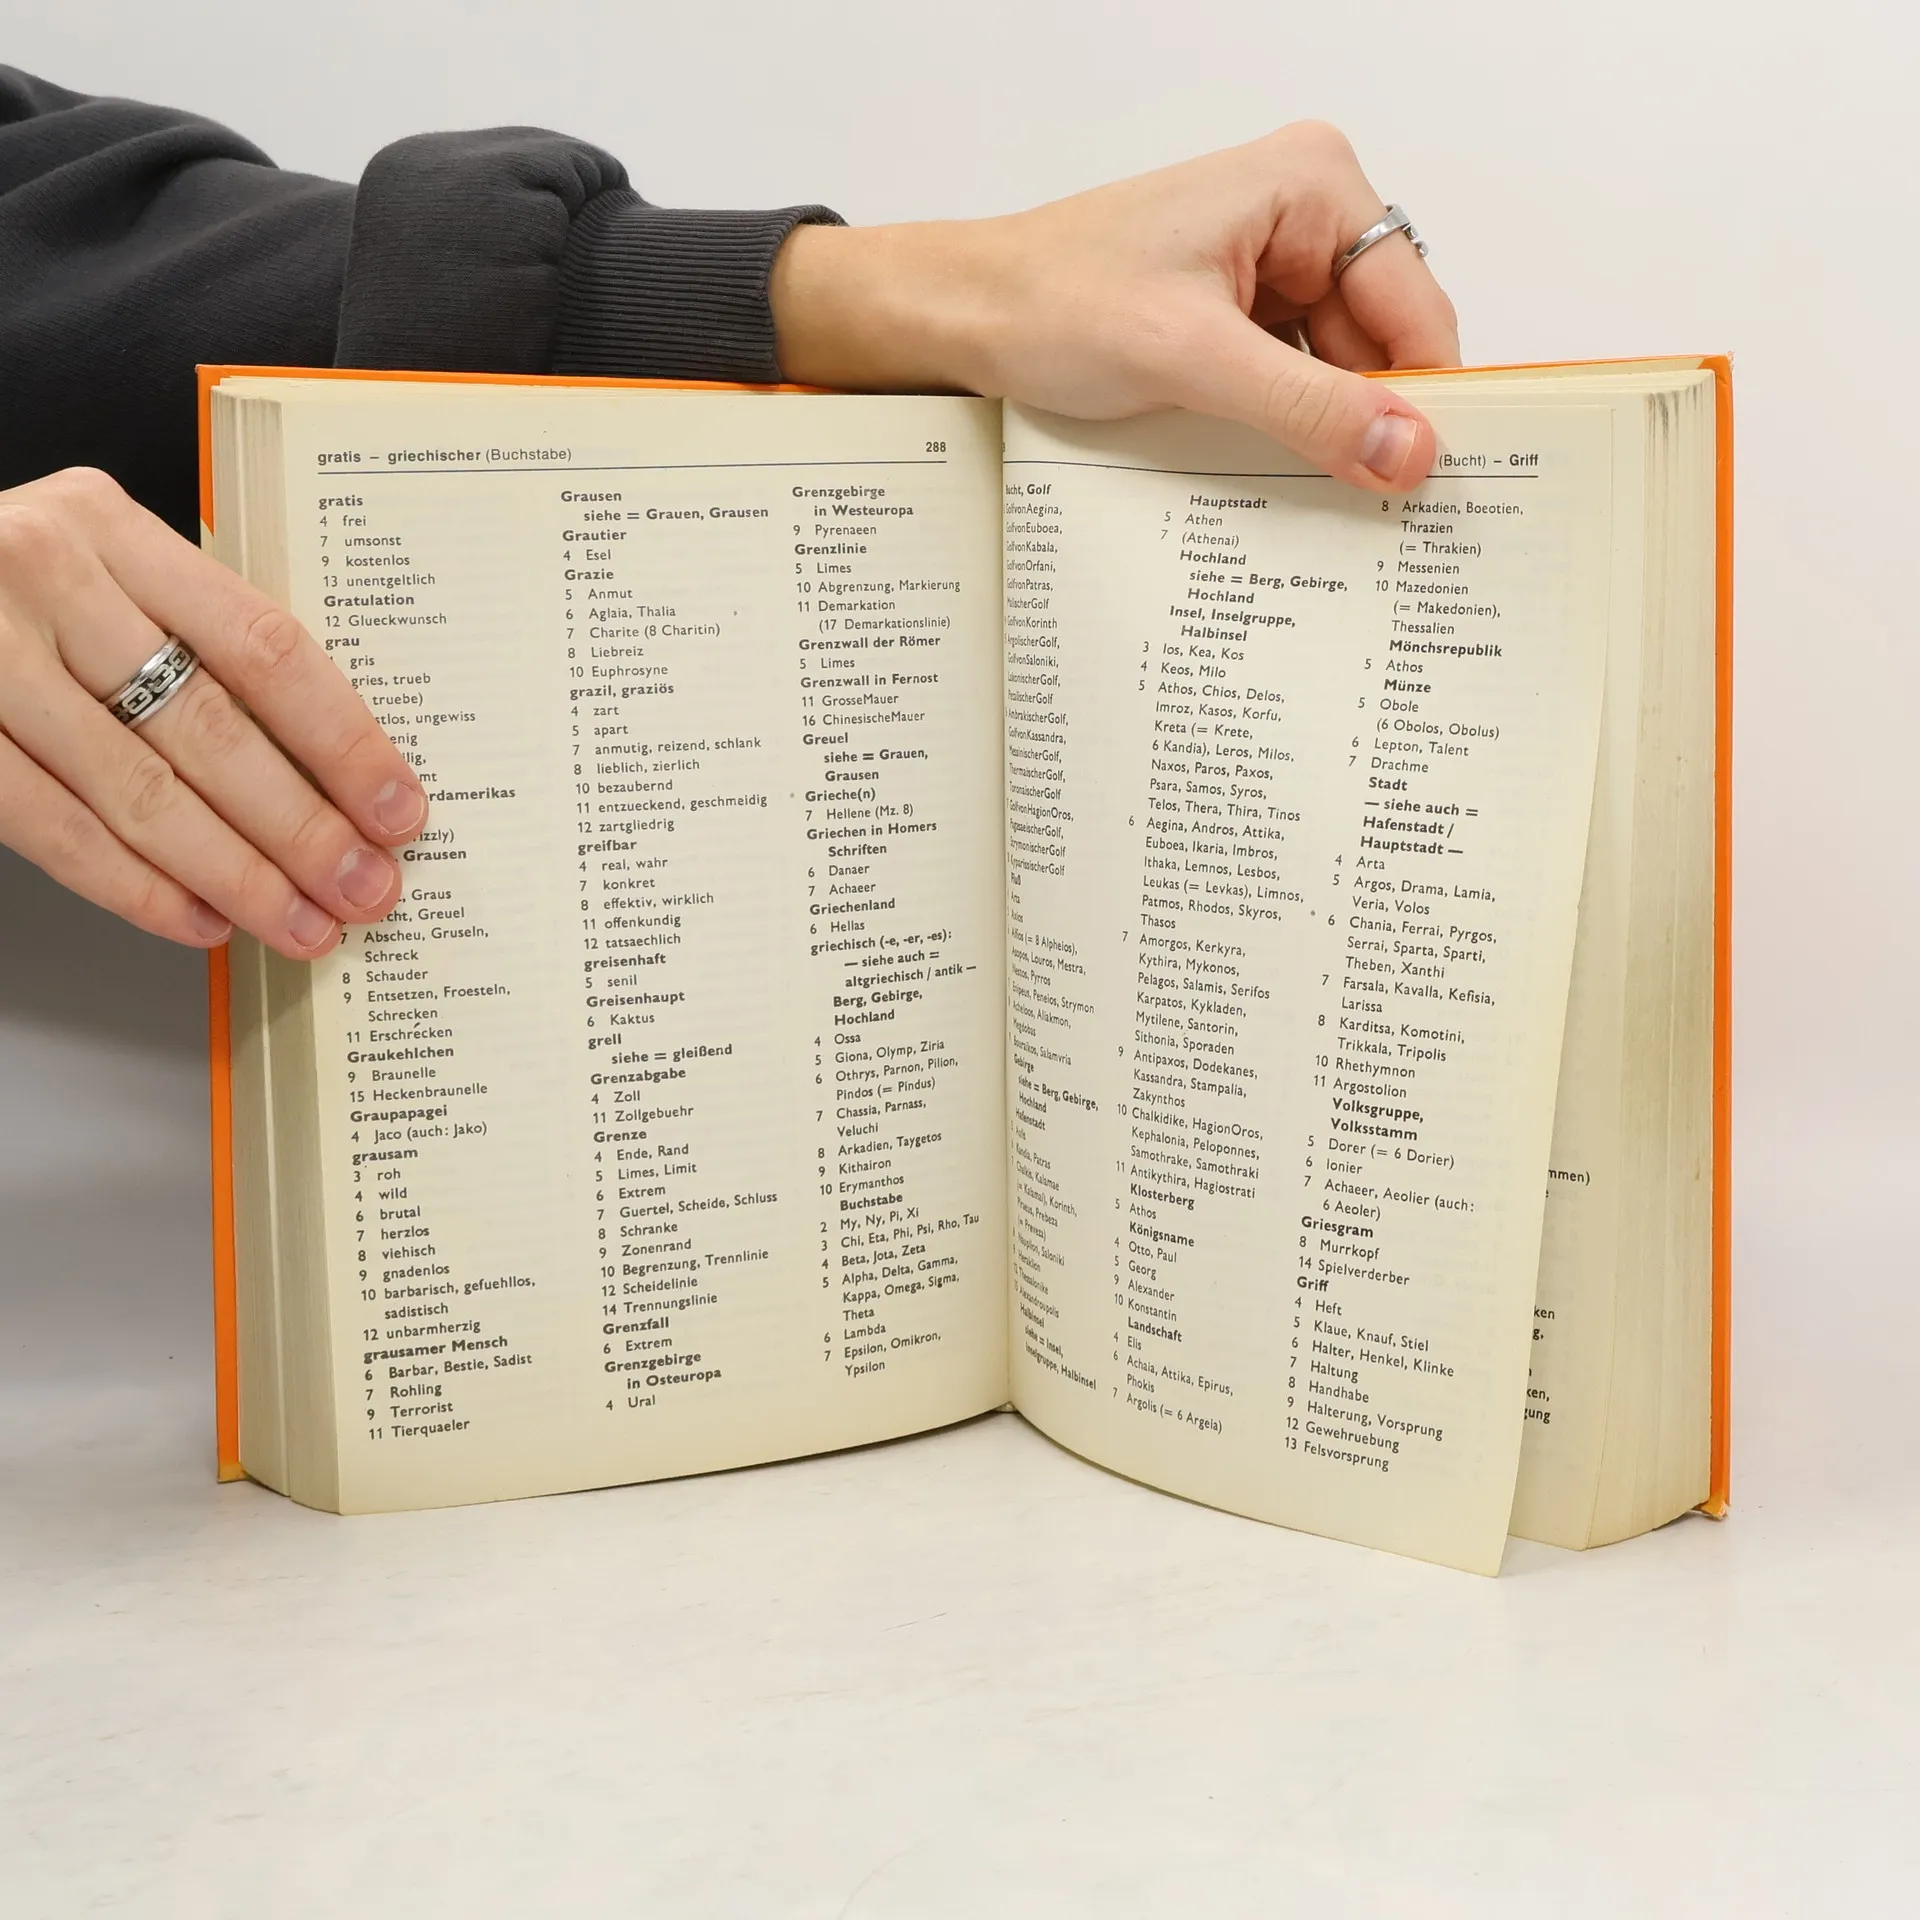 gratis – griechischer (Buchstabe) 288
gratis
4 frei
7 umsonst
9 kostenlos
13 unentgeltlich
Gratulation
12 Glueckwunsch
grau
gris
gries, trueb
truebe)
ungewiss
rdamerikas
Grausen
Graus
Greuel
7 Abscheu, Gruseln,
Schreck
8 Schauder
9 Entsetzen, Froesteln,
Schrecken
11 Erschrecken
Graukehlchen
9 Braunelle
15 Heckenbraunelle
Graupapagei
4 Jaco (auch: Jako)
grausam
3 roh
4 wild
6 brutal
7 herzlos
8 viehisch
9 gnadenlos
10 barbarisch, gefuehllos,
sadistisch
12 unbarmherzig
grausamer Mensch
6 Barbar, Bestie, Sadist
7 Rohling
9 Terrorist
11 Tierquaeler
Grausen
siehe = Grauen, Grausen
Grautier
4 Esel
Grazie
5 Anmut
6 Aglaia, Thalia
7 Charite (8 Charitin)
8 Liebreiz
10 Euphrosyne
grazil, graziös
4 zart
5 apart
7 anmutig, reizend, schlank
8 lieblich, zierlich
10 bezaubernd
11 entzueckend, geschmeidig
12 zartgliedrig
greifbar
4 real, wahr
7 konkret
8 effektiv, wirklich
11 offenkundig
12 tatsaechlich
greisenhaft
5 senil
Greisenhaupt
6 Kaktus
grell
siehe = gleißend
Grenzabgabe
4 Zoll
11 Zollgebuehr
Grenze
4 Ende, Rand
5 Limes, Limit
6 Extrem
7 Guertel, Scheide, Schluss
8 Schranke
9 Zonenrand
10 Begrenzung, Trennlinie
12 Scheidelinie
14 Trennungslinie
Grenzfall
6 Extrem
Grenzgebirge
in Osteuropa
4 Ural
Grenzgebirge
in Westeuropa
9 Pyrenaeen
Grenzlinie
5 Limes
10 Abgrenzung, Markierung
11 Demarkation
(17 Demarkationslinie)
Grenzwall der Römer
5 Limes
Grenzwall in Fernost
11 GrosseMauer
16 ChinesischeMauer
Greuel
siehe = Grauen,
Grausen
Grieche(n)
7 Hellene (Mz. 8)
Griechen in Homers
Schriften
6 Danaer
7 Achaeer
Griechenland
6 Hellas
griechisch (-e, -er, -es):
— siehe auch =
altgriechisch / antik —
Berg, Gebirge,
Hochland
4 Ossa
5 Giona, Olymp, Ziria
6 Othrys, Parnon, Pilion,
Pindos (= Pindus)
7 Chassia, Parnass,
Veluchi
8 Arkadien, Taygetos
9 Kithairon
10 Erymanthos
Buchstabe
2 My, Ny, Pi, Xi
3 Chi, Eta, Phi, Psi, Rho, Tau
4 Beta, Jota, Zeta
5 Alpha, Delta, Gamma,
Kappa, Omega, Sigma,
Theta
6 Lambda
7 Epsilon, Omikron,
Ypsilon
(Bucht) – Griff
Bucht, Golf
GolfvonAegina,
GolfvonEuboea,
GolfvonKabala,
GolfvonOrfani,
GolfvonPatras,
MalischerGolf
GolfvonKorinth
ArgolischerGolf,
GolfvonSaloniki,
LakonischerGolf,
PetalischerGolf
AmbrakischerGolf,
GolfvonKassandra,
MessinischerGolf,
ThermaischerGolf,
ToronaischerGolf
GolfvonHagionOros,
PagasaeischerGolf,
StrymonischerGolf
KyparissischerGolf
Fluß
Arta
Axios
Alfios (= 8 Alpheios),
Asopos, Louros, Mestra,
Nestos, Pyrros
Enipeus, Peneios, Strymon
Acheloos, Aliakmon,
Megdobas
Bouraikos, Salamvria
Gebirge
siehe = Berg, Gebirge,
Hochland
Hafenstadt
Aulis
Kandia, Patras
Chalkis, Kalamae
(= Kalamai), Korinth,
Piraeus, Prebeza
(= Preveza)
Nauplion, Saloniki
Heraklion
Thessalonike
Alexandroupolis
Halbinsel
siehe = Insel,
Inselgruppe, Halbinsel
Hauptstadt
5 Athen
7 (Athenai)
Hochland
siehe = Berg, Gebirge,
Hochland
Insel, Inselgruppe,
Halbinsel
3 Ios, Kea, Kos
4 Keos, Milo
5 Athos, Chios, Delos,
Imroz, Kasos, Korfu,
Kreta (= Krete,
6 Kandia), Leros, Milos,
Naxos, Paros, Paxos,
Psara, Samos, Syros,
Telos, Thera, Thira, Tinos
6 Aegina, Andros, Attika,
Euboea, Ikaria, Imbros,
Ithaka, Lemnos, Lesbos,
Leukas (= Levkas), Limnos,
Patmos, Rhodos, Skyros,
Thasos
7 Amorgos, Kerkyra,
Kythira, Mykonos,
Pelagos, Salamis, Serifos
Karpatos, Kykladen,
Mytilene, Santorin,
Sithonia, Sporaden
9 Antipaxos, Dodekanes,
Kassandra, Stampalia,
Zakynthos
10 Chalkidike, HagionOros,
Kephalonia, Peloponnes,
Samothrake, Samothraki
11 Antikythira, Hagiostrati
Klosterberg
5 Athos
Königsname
4 Otto, Paul
5 Georg
9 Alexander
10 Konstantin
Landschaft
4 Elis
6 Achaia, Attika, Epirus,
Phokis
7 Argolis (= 6 Argeia)
8 Arkadien, Boeotien,
Thrazien
(= Thrakien)
9 Messenien
10 Mazedonien
(= Makedonien),
Thessalien
Mönchsrepublik
5 Athos
Münze
5 Obole
(6 Obolos, Obolus)
6 Lepton, Talent
7 Drachme
Stadt
— siehe auch =
Hafenstadt /
Hauptstadt —
4 Arta
5 Argos, Drama, Lamia,
Veria, Volos
6 Chania, Ferrai, Pyrgos,
Serrai, Sparta, Sparti,
Theben, Xanthi
7 Farsala, Kavalla, Kefisia,
Larissa
8 Karditsa, Komotini,
Trikkala, Tripolis
10 Rhethymnon
11 Argostolion
Volksgruppe,
Volksstamm
5 Dorer (= 6 Dorier)
6 Ionier
7 Achaeer, Aeolier (auch:
6 Aeoler)
Griesgram
8 Murrkopf
14 Spielverderber
Griff
4 Heft
5 Klaue, Knauf, Stiel
6 Halter, Henkel, Klinke
7 Haltung
8 Handhabe
9 Halterung, Vorsprung
12 Gewehruebung
13 Felsvorsprung